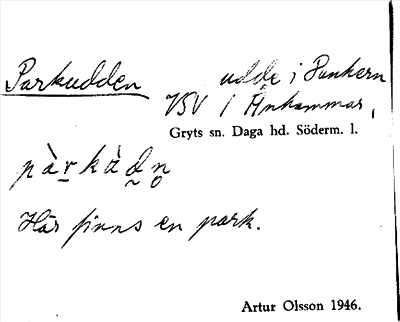 Parkudden udde i Dunkern
VSV / Ånhammar,
Gryts sn. Daga hd. Söderm. l.
pàr̠kàd̰n̥
Här finns en park.
Artur Olsson 1946.